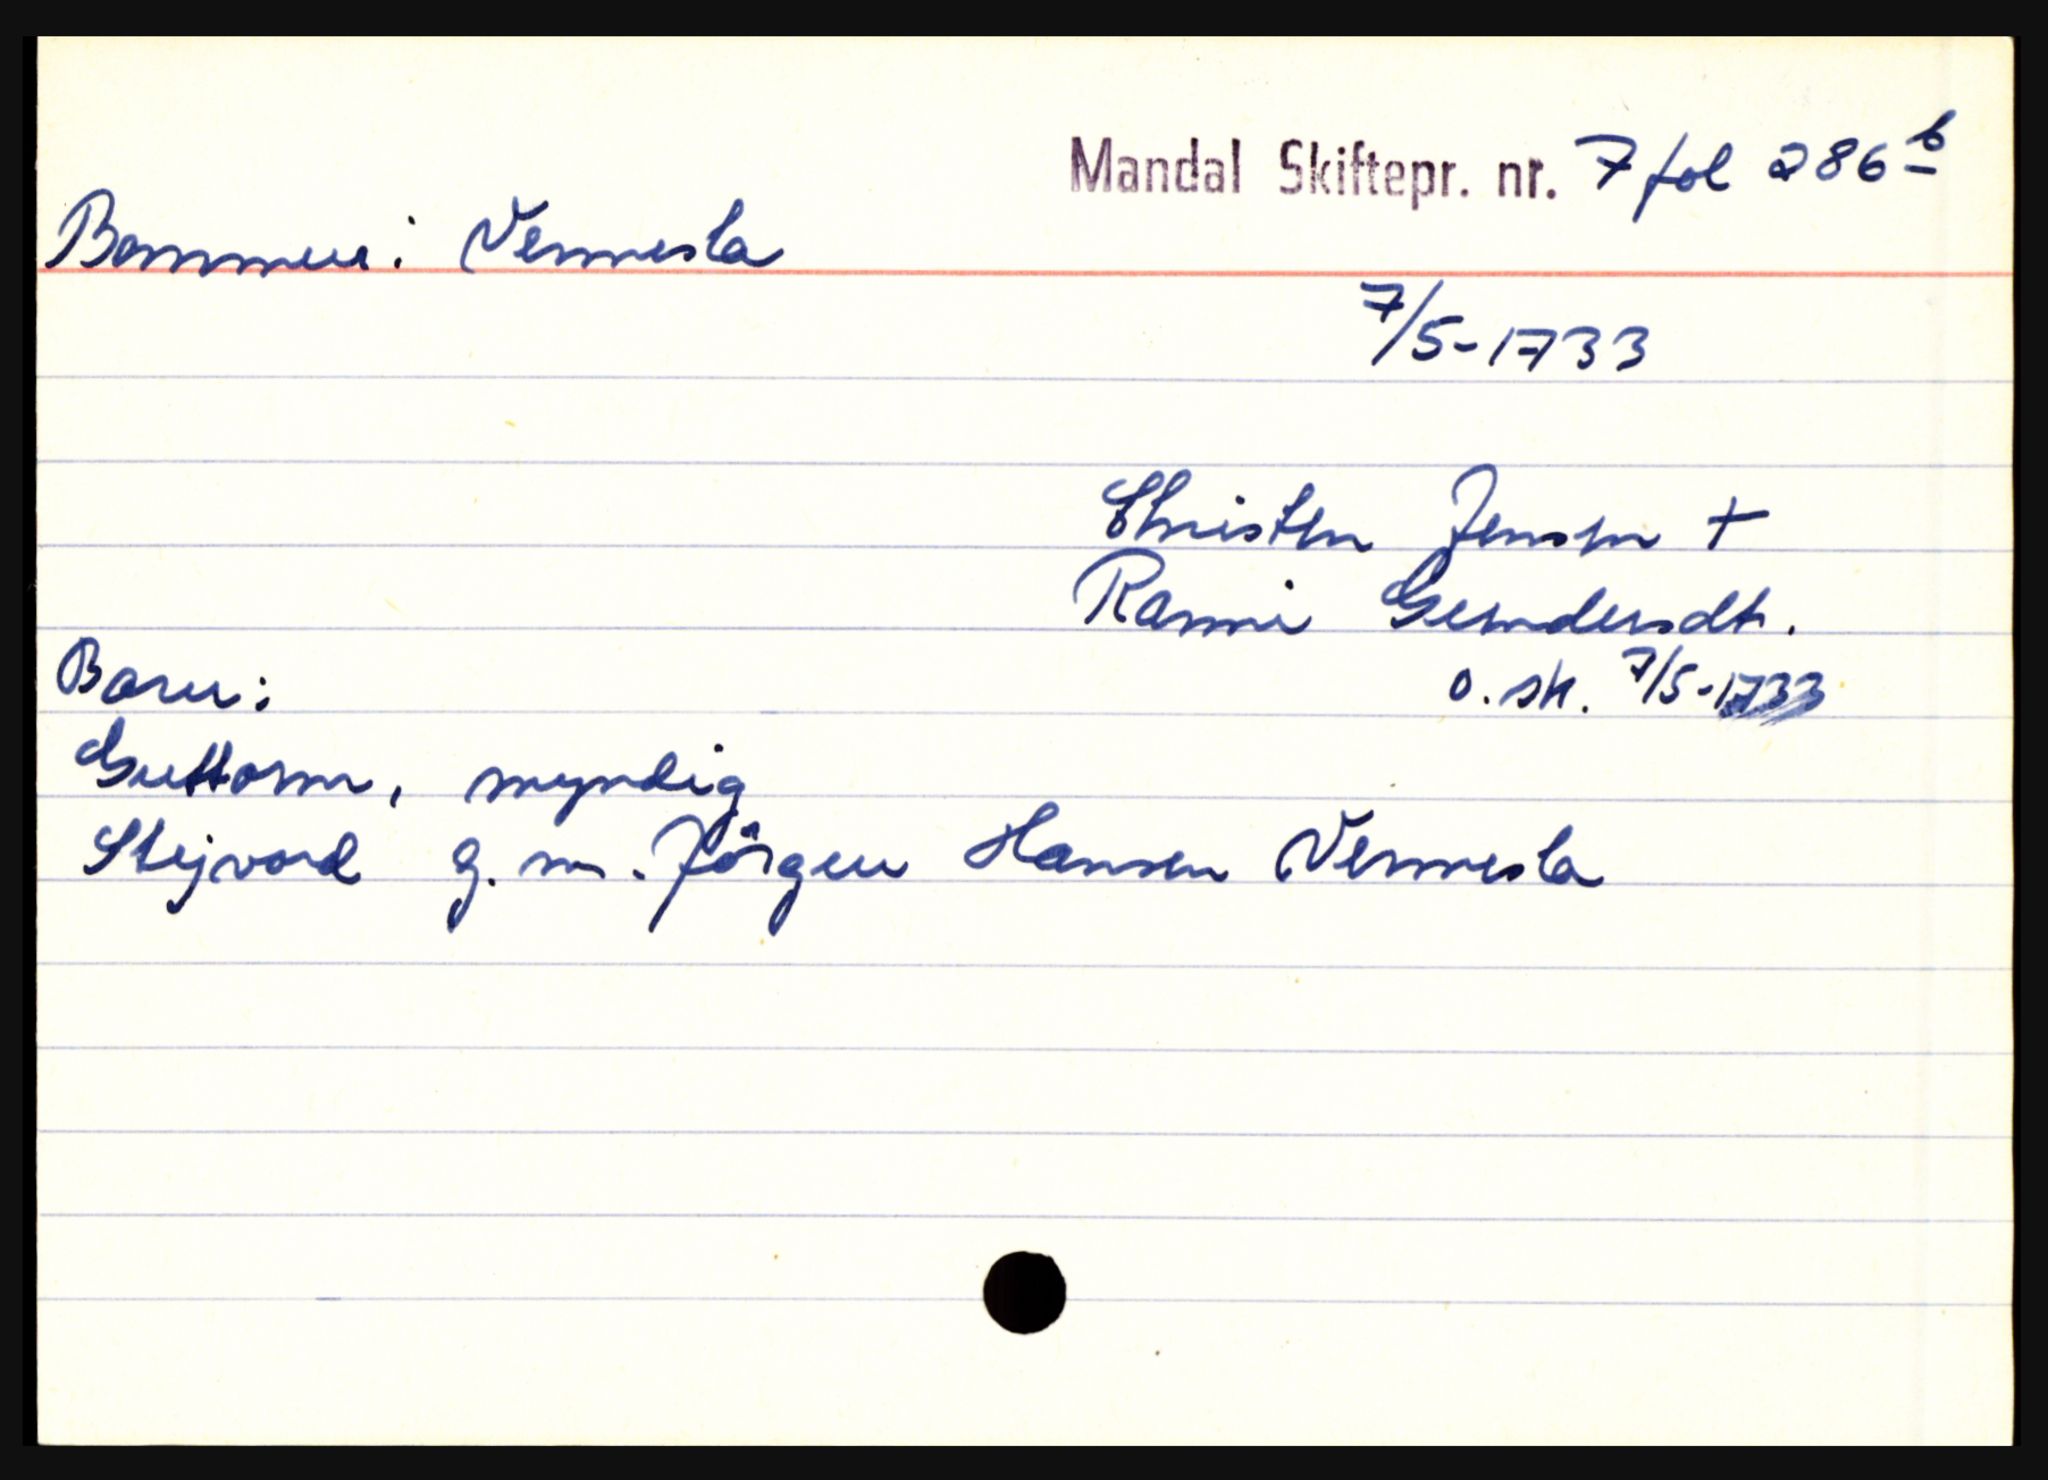 Mandal Skiftepr. nr. 7 fol 286 b
Bommen: Vennesla
7/5-1733
Christen Jensen +
Ranni Gunders dt.
o. sk. 7/5-1733
Barn:
Guttorm, myndig
Stejvord g. m. Jörgen Hansen Vennesla